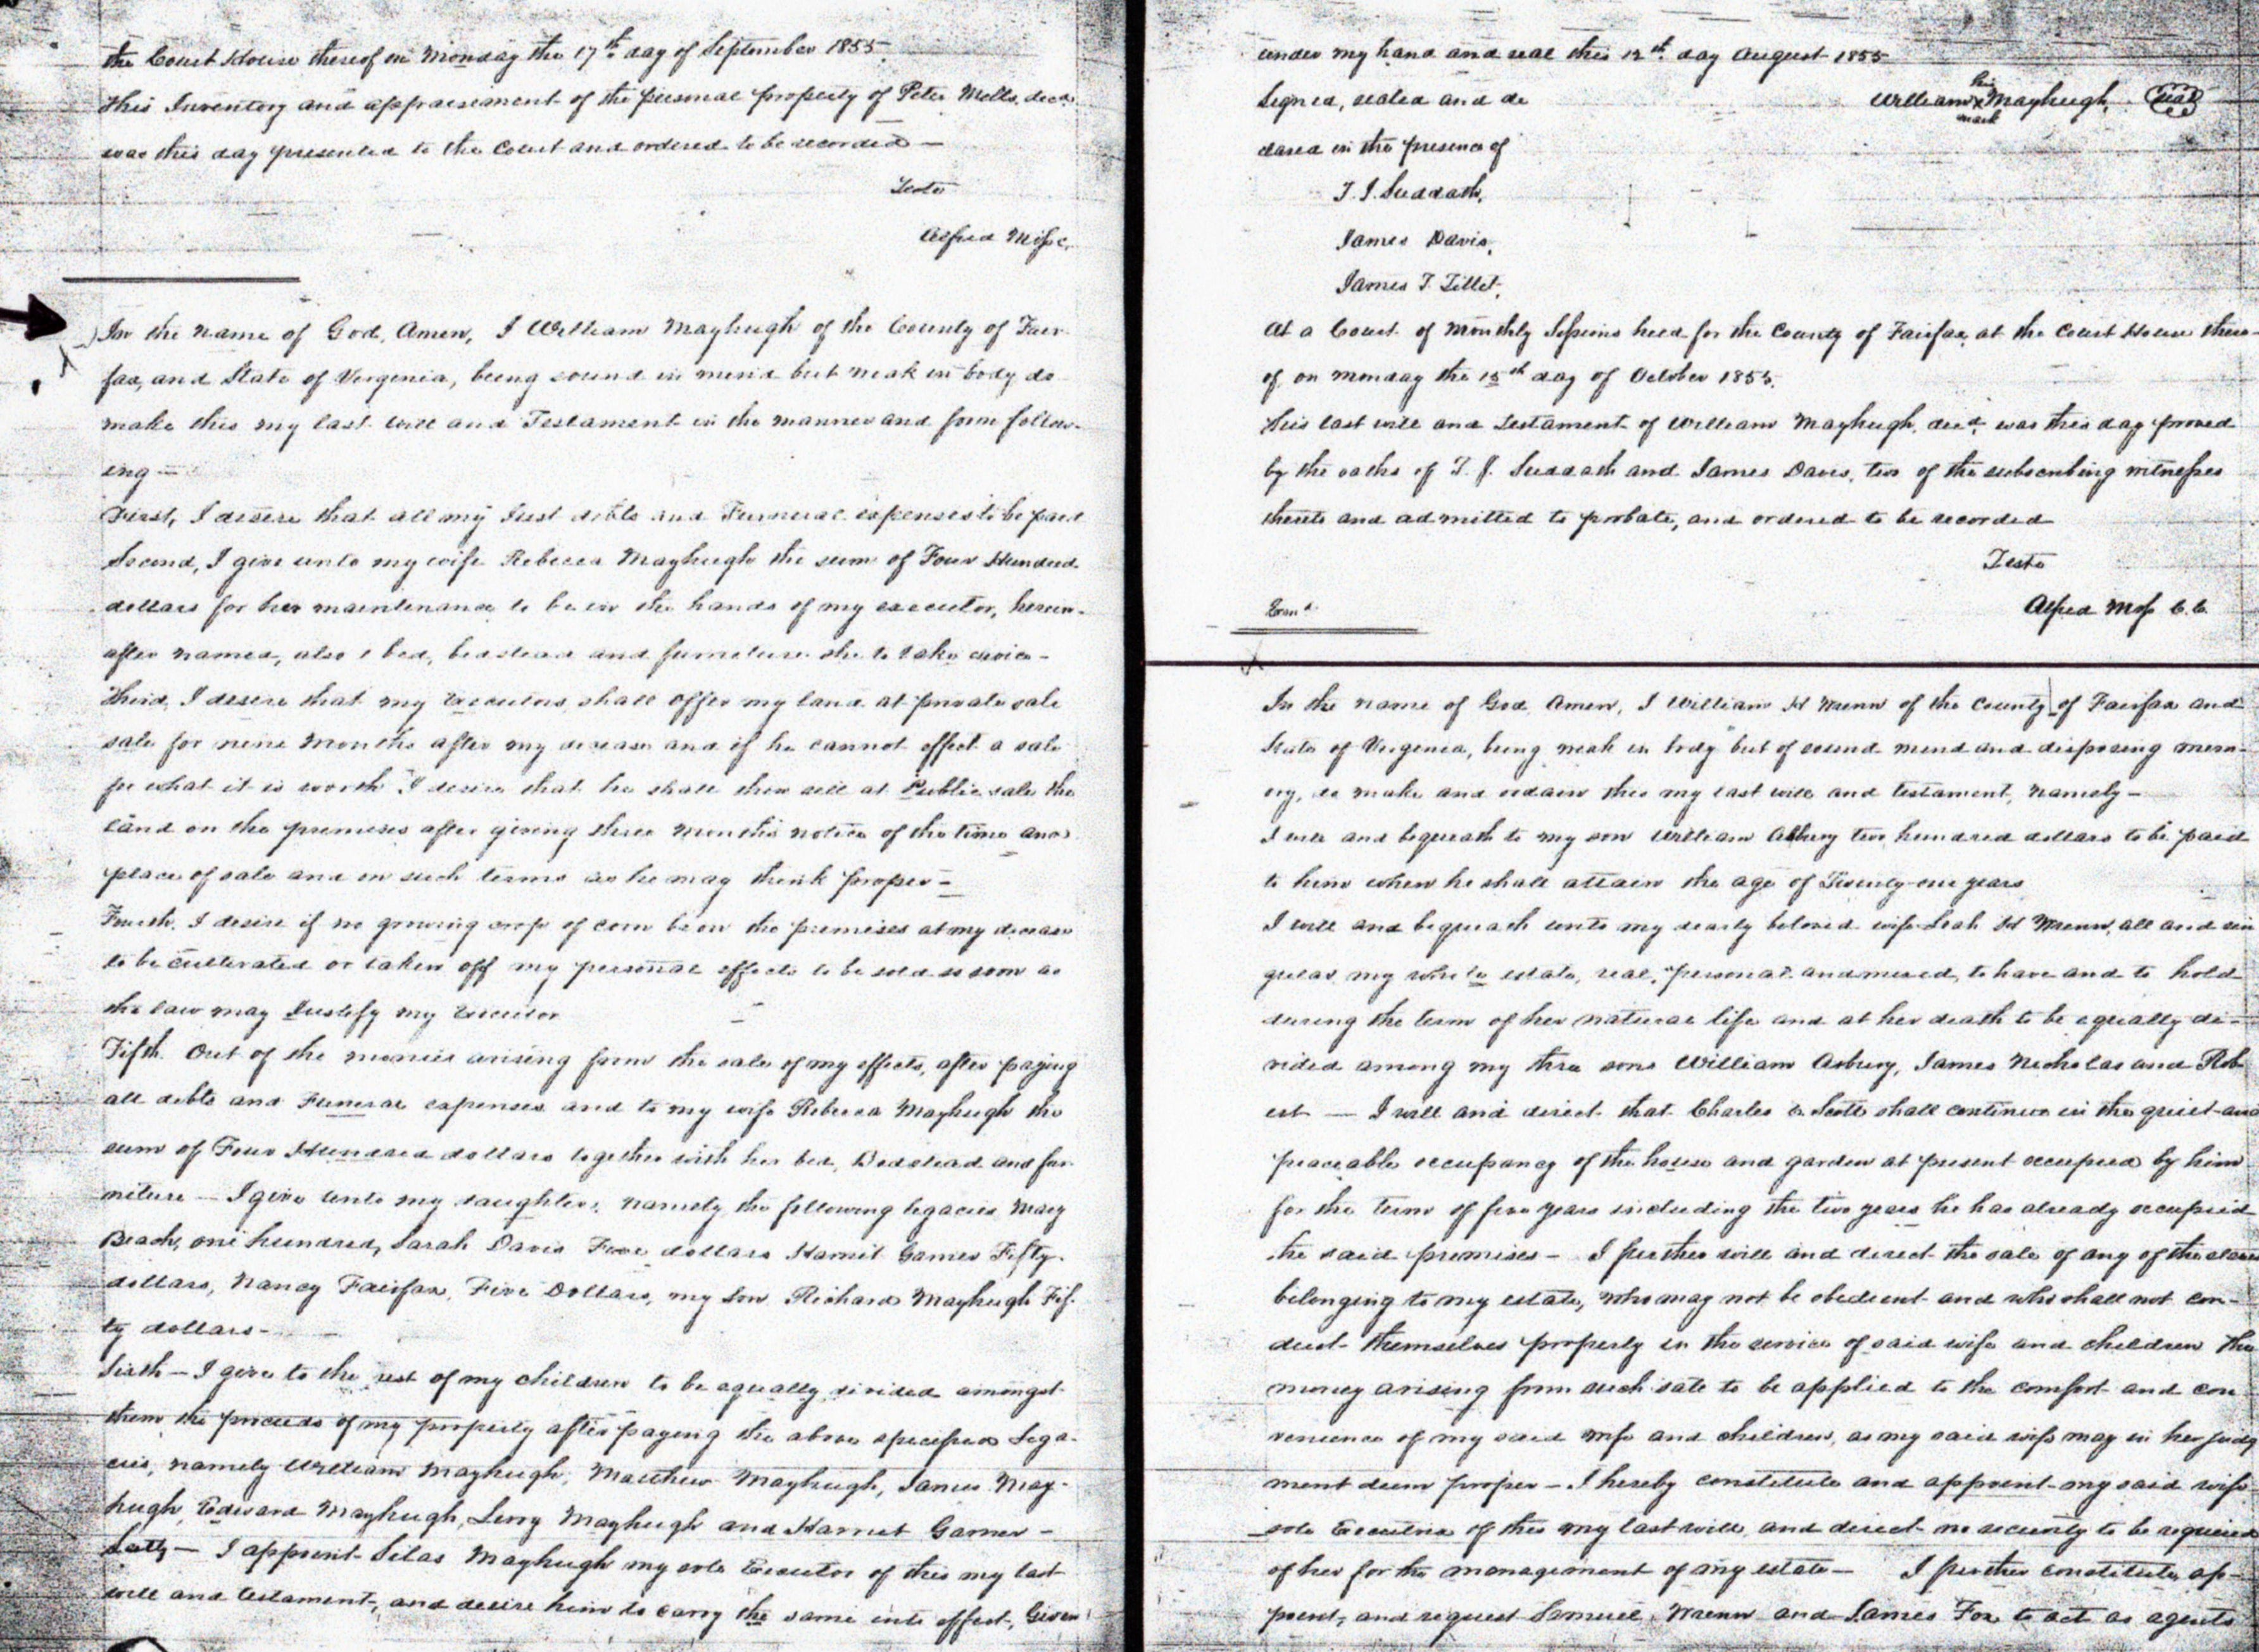 the Court House thereof on Monday the 17th day of September 1855
This Inventory and appraisement of the personal property of Peter Mells, decd.
was this day presented to the Court and ordered to be recorded —
Teste
Alfred Moss C.
In the name of God, Amen, I William Mayhugh of the County of Fair-
fax, and State of Virginia, being sound in mind but weak in body do
make this my last will and Testament in the manner and form follow-
ing —
First, I desire that all my Just debts and Funeral expenses to be paid
Second, I give unto my wife Rebecca Mayhugh the sum of Four Hundred
dollars for her maintenance to be in the hands of my executor, herein-
after named, also 1 bed, bedstead and furniture she to take choice —
Third, I desire that my Executors shall offer my land at private sale
sale for nine Months after my decease and if he cannot effect a sale
for what it is worth I desire that he shall then sell at Public sale the
land on the premises after giving three Months notice of the time and
place of sale and on such terms as he may think proper —
Fourth. I desire if no growing crop of corn be on the premises at my decease
to be cultivated or taken off my personal effects to be sold so soon as
the law may Justify my Executor
Fifth. Out of the monies arising from the sale of my effects, after paying
all debts and Funeral expenses and to my wife Rebecca Mayhugh the
sum of Four Hundred dollars together with her bed, Bedstead and fur-
niture — I give unto my daughters, namely the following legacies Mary
Beach, one hundred, Sarah Davis Five dollars Harriet Garner Fifty
dollars, Nancy Fairfax, Five Dollars, my son Richard Mayhugh Fif-
ty dollars —
Sixth — I give to the rest of my children to be equally divided amongst
them the proceeds of my property after paying the above specified Lega-
cies, namely William Mayhugh, Matthew Mayhugh, James May-
hugh, Edward Mayhugh, Levy Mayhugh and Harriet Garner —
Lastly — I appoint Silas Mayhugh my sole Executor of this my last
will and testament, and desire him to carry the same into effect, Given
under my hand and seal this 12th. day August 1855
Signed, sealed and de
William X Mayhugh, Seal
his
mark
clared in the presence of
T. J. Suddath,
James Davis,
James T. Tillet,
At a Court of Monthly Sessions held for the County of Fairfax, at the Court House there-
of on Monday the 15th day of October 1855.
This last will and testament of William Mayhugh, decd. was this day proved
by the oaths of T. J. Suddath and James Davis, two of the subscribing witnesses
thereto and admitted to probate, and ordered to be recorded
Teste
Examd.
Alfred Moss C. C.
In the name of God Amen, I William H Wrenn of the County of Fairfax and
State of Virginia, being weak in body but of sound mind and disposing mem-
ory, do make and ordain this my last will and testament, namely —
I will and bequeath to my son William Asbury two hundred dollars to be paid
to him when he shall attain the age of Twenty-one years
I will and bequeath unto my dearly beloved wife Leah H Wrenn, all and sin
gular my whole estate, real, personal and mixed, to have and to hold
during the term of her natural life and at her death to be equally di-
vided among my three sons William Asbury, James Nicholas and Rob
ert — I will and direct that Charles Scott shall continue in the quiet and
peaceable occupancy of the house and garden at present occupied by him
for the term of five years including the two years he has already occupied
the said premises — I further will and direct the sale of any of the slaves
belonging to my estate, who may not be obedient and who shall not con-
duct themselves properly in the service of said wife and children the
money arising from such sale to be applied to the comfort and con
venience of my said wife and children, as my said wife may in her judg
ment deem proper — I hereby constitute and appoint my said wife
sole Executrix of this my last will, and direct no security to be required
of her for the management of my estate — I further constitute, ap-
point, and request Samuel Wrenn and James Fox to act as agents